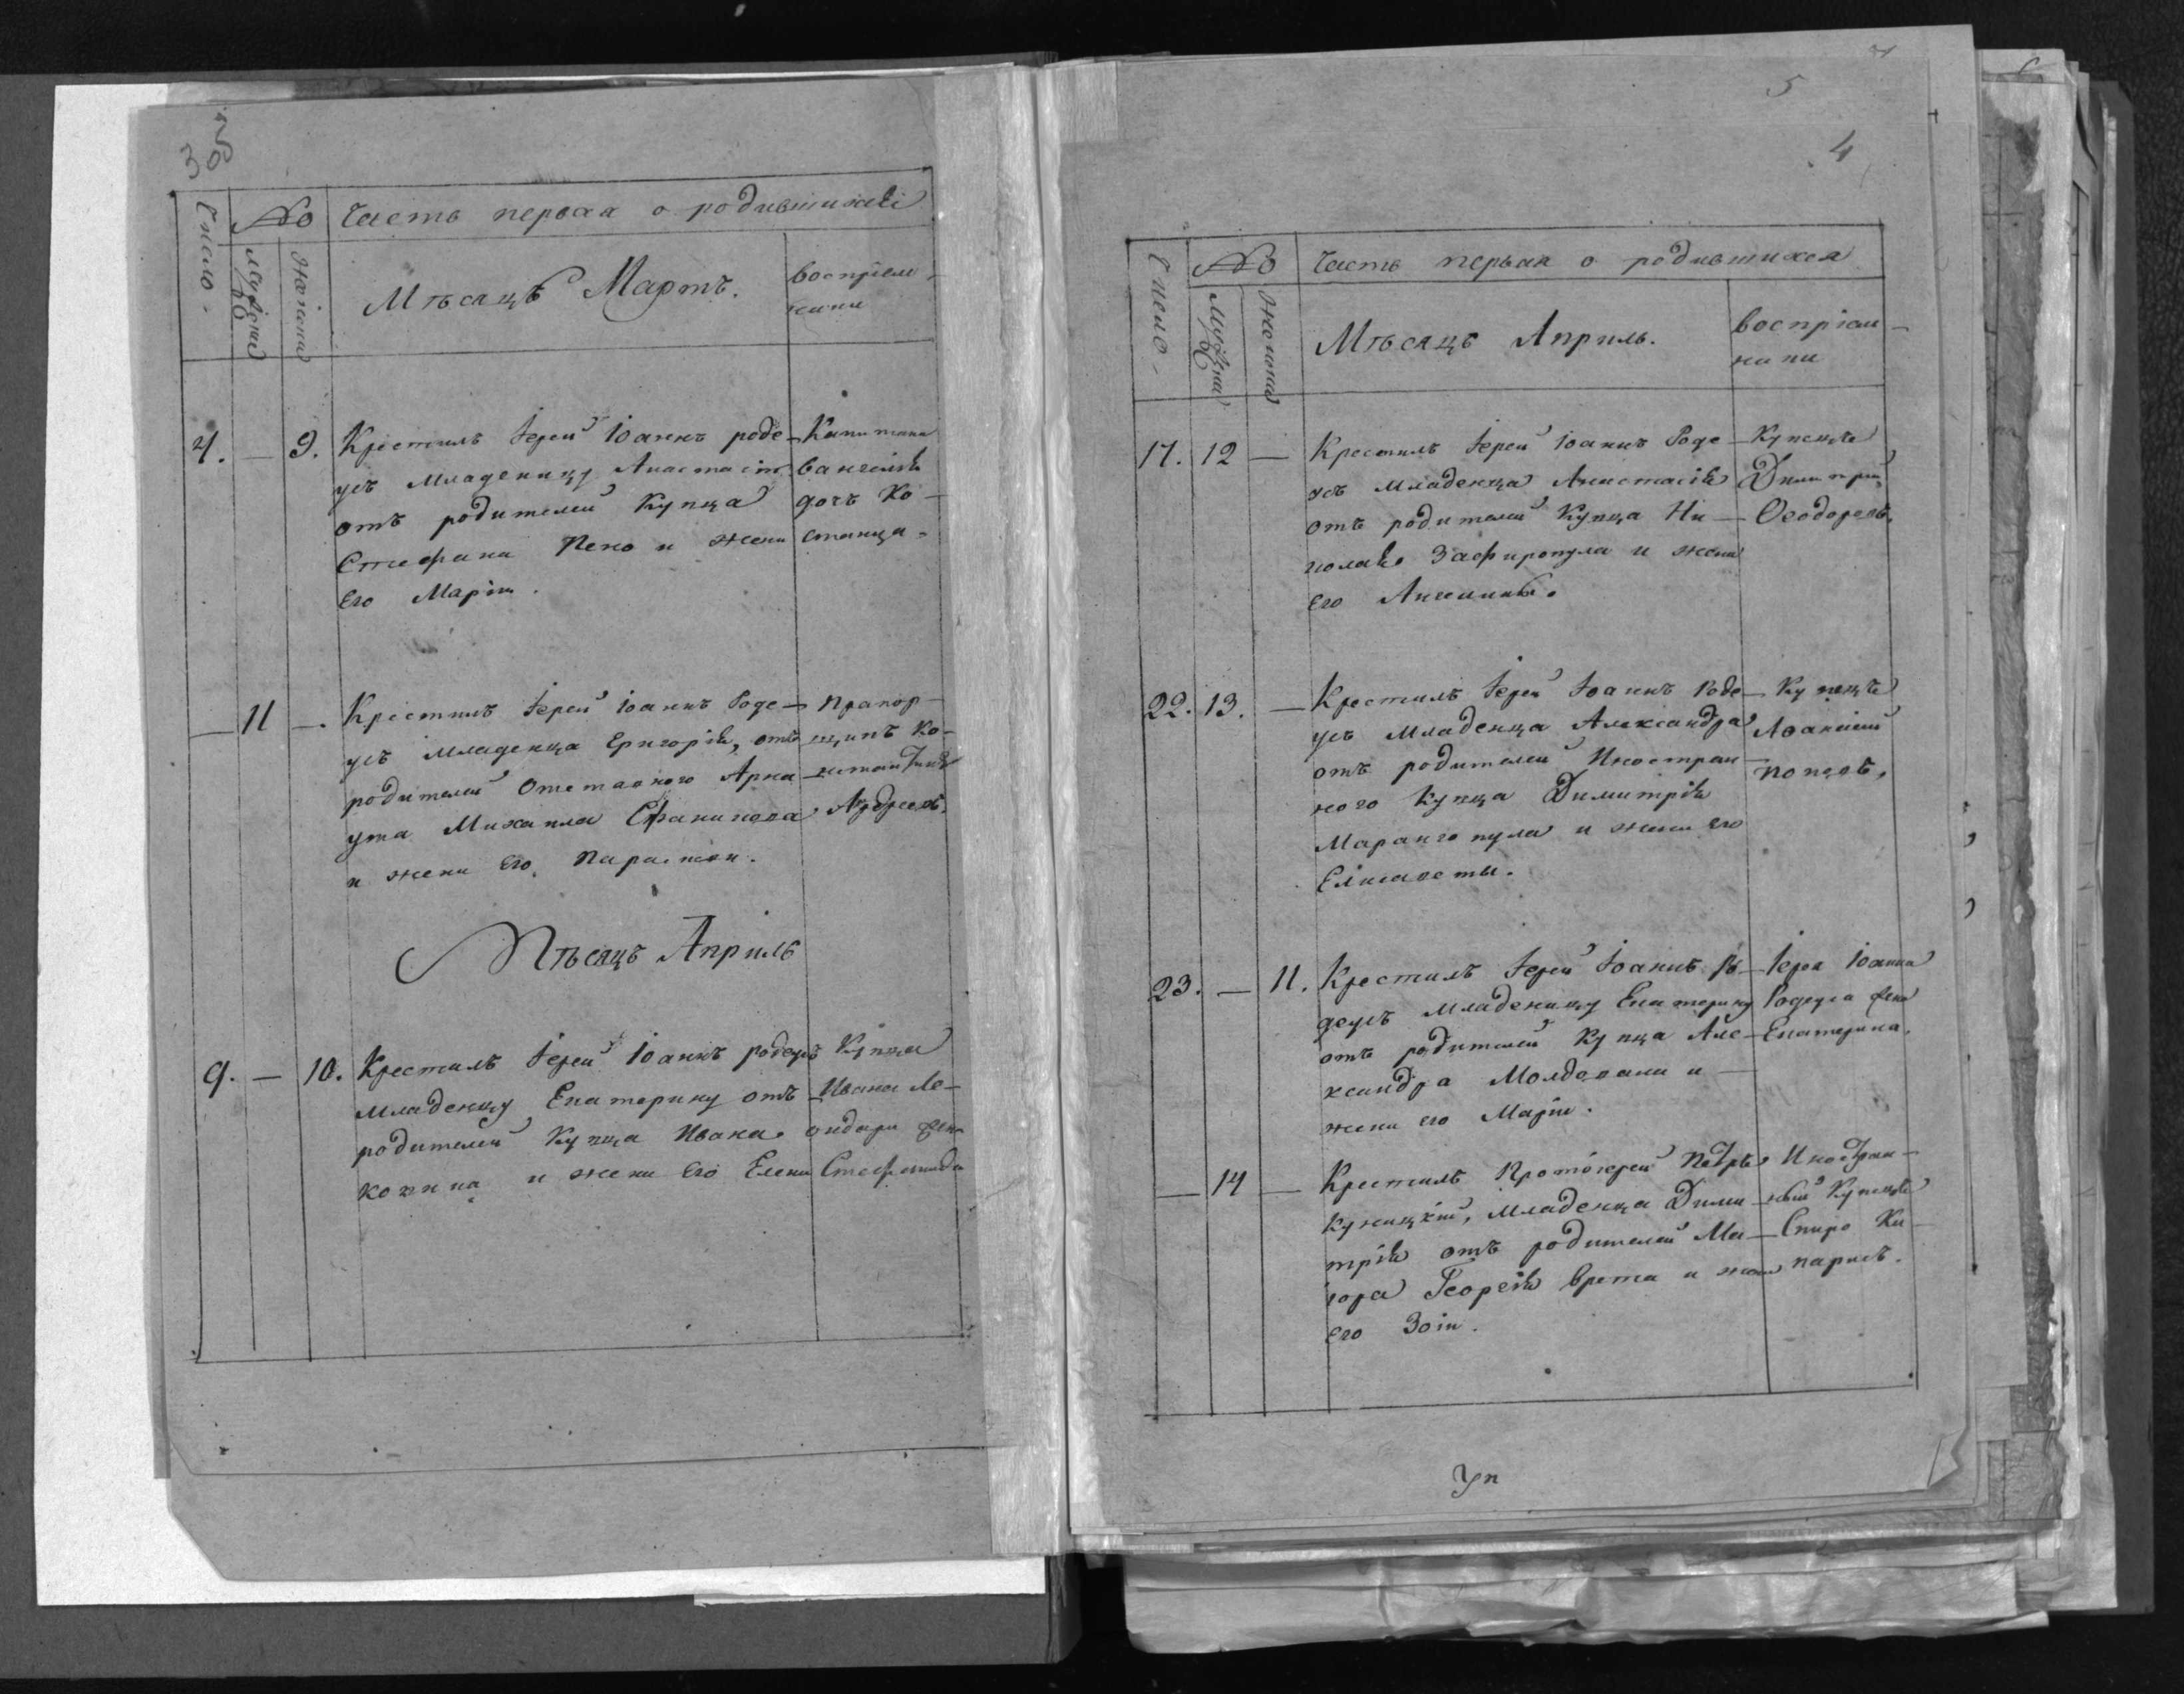 3
Число
№
Часть первая о родившихся
Мужеска
Женска
Мѣсяцъ Мартъ.
воспріем-
ники
4. — 9.
Крестилъ Іерей Іоаннъ роде-
усъ Младеницу Анастасію
отъ родителей Купца
Стефана Пено и жени
Его Маріи.
Капитана
Вангелія
дочь Ко-
станца.
— 11 —.
Крестилъ Іерей Іоаннъ Роде-
усъ младенца Григорія, отъ
родителей Отставного Арна
ута Михаила
и жени Его
Прапор-
щикъ Ко-
нстантинъ
Андреевъ.
Мѣсяцъ Априль
9. — 10.
Крестилъ Іерей Іоаннъ родеусъ
младеницу Екатерину отъ
родителей Купца Ивана
и жени Его Елени
Купца
Ивана Ле-
ондари
5
4
Число
№
Часть первая о родившихся
Мужеска
Женска
Мѣсяцъ Априль.
воспріем-
ники
17. 12 —
Крестилъ Іерей Іоаннъ Роде
усъ Младенца Анастасія
отъ родителей Купца Ни-
колая Зафиропула и жени
Его Ангелины.
Купецъ
Димитрій
Ѳеодоровъ.
22. 13. —
Крестилъ Іерей Іоаннъ Роде-
усъ Младенца Александра
отъ родителей Иностран-
ного Купца Димитрія
Марангопула и жени его
Елисаветы.
Купецъ
Аѳанасій
Поповъ,
23. — 11.
Крестилъ Іерей Іоаннъ Ро-
деусъ Младеницу Екатерину
отъ родителей Купца Але-
ксандра Молдовани и —
жени его Маріи.
Іерея Іоанна
Родеуса жена
Екатерина.
— 14 —
Крестилъ Протоіерей Петръ
Куницкій, Младенца Дими-
трія отъ родителей Ма-
іора Георгія Врета и жени
Его Зоіи.
Иностран-
ный Купецъ
Спиро Ки-
парисъ.